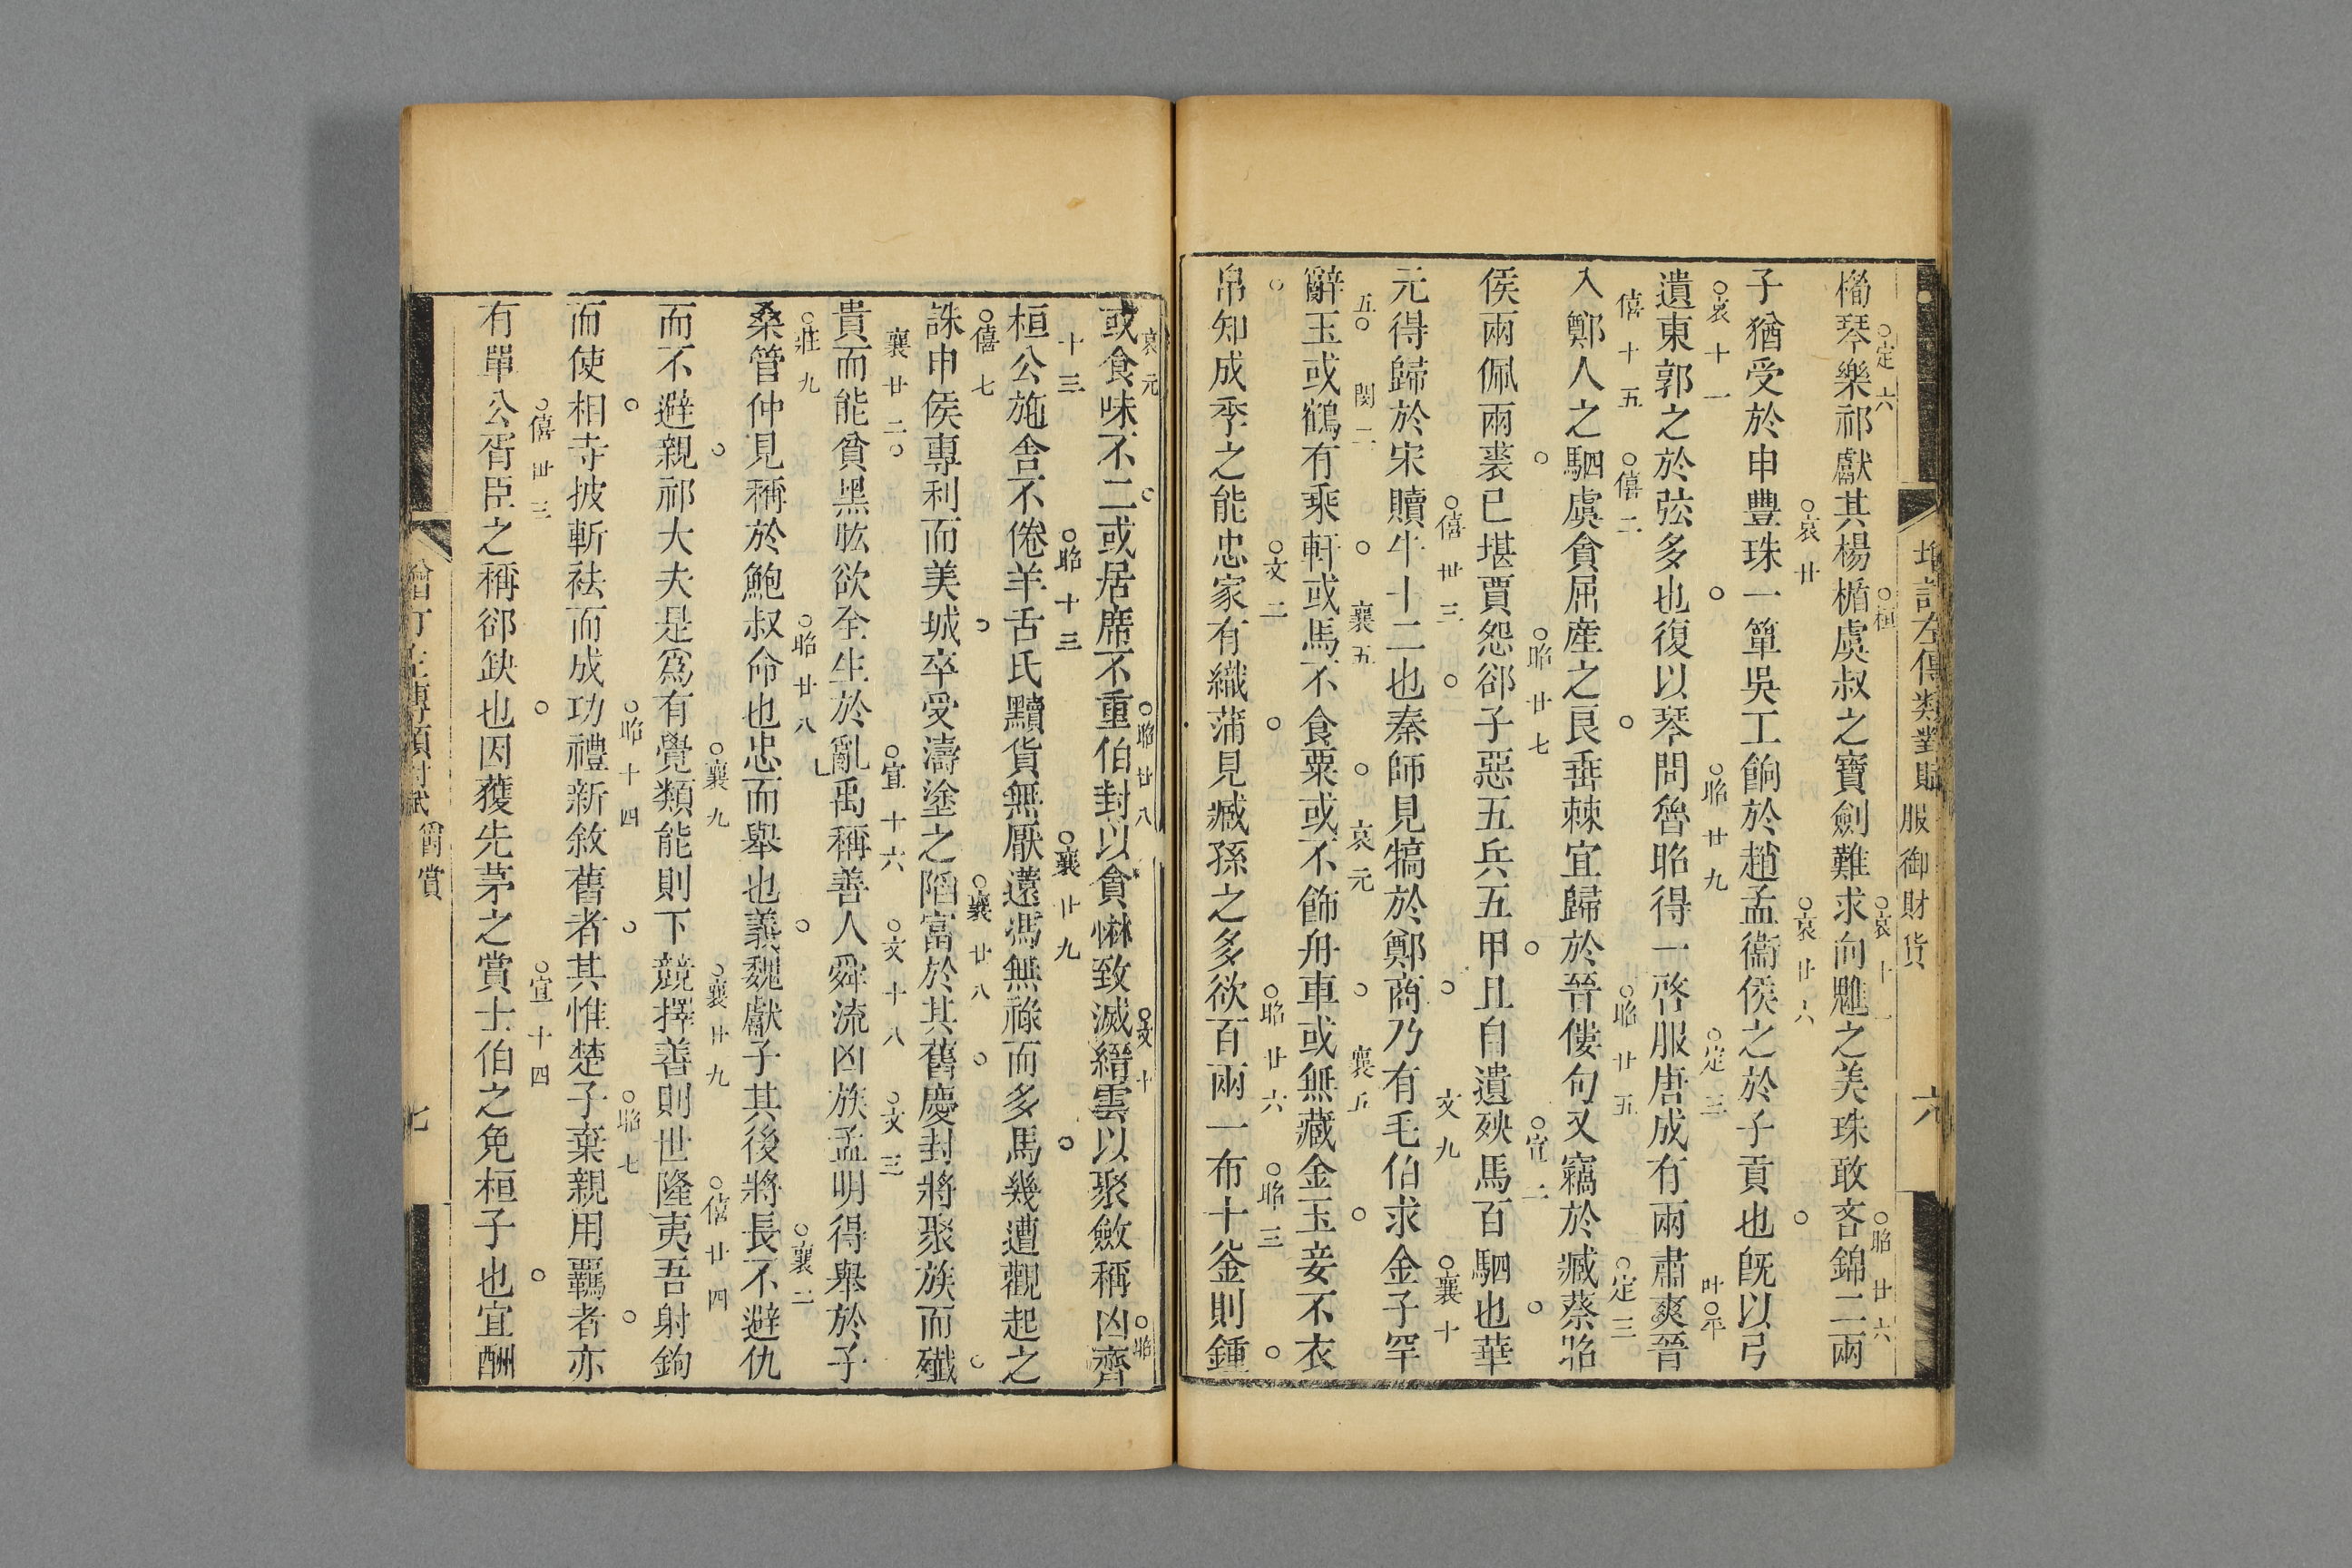 增訂左傳類對賦 服御財貨 六
○定六 ○桓 ○哀十一 ○昭廿六
琴樂祁獻其楊楯虞叔之寶劍難求向魋之美珠敢吝錦二兩
○哀廿 ○哀廿六 ○
子猶受於申豐珠一簞吳工餉於趙孟衞侯之於子貢也旣以弓
○哀十一 ○ ○昭廿九 ○定三 叶○平
遺東郭之於弦多也復以琴問魯昭得一啓服唐成有兩肅爽晉
僖十五 ○僖二 ○ ○昭廿五 ○定三
入鄭人之駟虞貪屈產之良垂棘宜歸於晉僂句又竊於臧蔡昭
○ ○昭廿七 ○ ○宣二 ○
侯兩佩兩裘已堪賈怨郤子惡五兵五甲且自遺殃馬百駟也華
○僖卅三 ○ ○ 文九 ○襄十
元得歸於宋贖牛十二也秦師見犒於鄭商乃有毛伯求金子罕
五○ 閔二 ○ 襄五 ○ 哀元 ○ 襄五 ○
辭玉或鶴有乘軒或馬不食粟或不飾舟車或無藏金玉妾不衣
○ ○文二 ○ ○昭廿六 ○昭三 ○
帛知成季之能忠家有織蒲見臧孫之多欲百兩一布十釜則鍾
哀元 ○ ○昭廿八 ○文十 ○昭
或食味不二或居席不重伯封以貪惏致滅縉雲以聚斂稱凶齊
十三 ○昭十三 ○襄廿九 ○
桓公施舍不倦羊舌氏黷貨無厭薳馮無祿而多馬幾遭觀起之
○僖七 ○ ○襄廿八 ○ ○
誅申侯專利而美城卒受濤塗之陷富於其舊慶封將聚族而殲
襄廿二○ ○宣十六 ○文十八 ○文三
貴而能貧黑肱欲全生於亂禹稱善人舜流凶族孟明得舉於子
○莊九 ○昭廿八 ○ ○襄三
桑管仲見稱於鮑叔命也忠而舉也義魏獻子其後將長不避仇
○ ○襄九 ○襄廿九 ○僖廿四
而不避親祁大夫是爲有覺類能則下競擇善則世隆夷吾射鉤
○ ○昭十四 ○ ○昭七 ○
而使相寺披斬袪而成功禮新敘舊者其惟楚子棄親用羈者亦
○僖卅三 ○ ○宣十四 ○
有單公胥臣之稱郤缺也因獲先茅之賞士伯之免桓子也宜酬
增訂左傳類對賦 爵賞 七